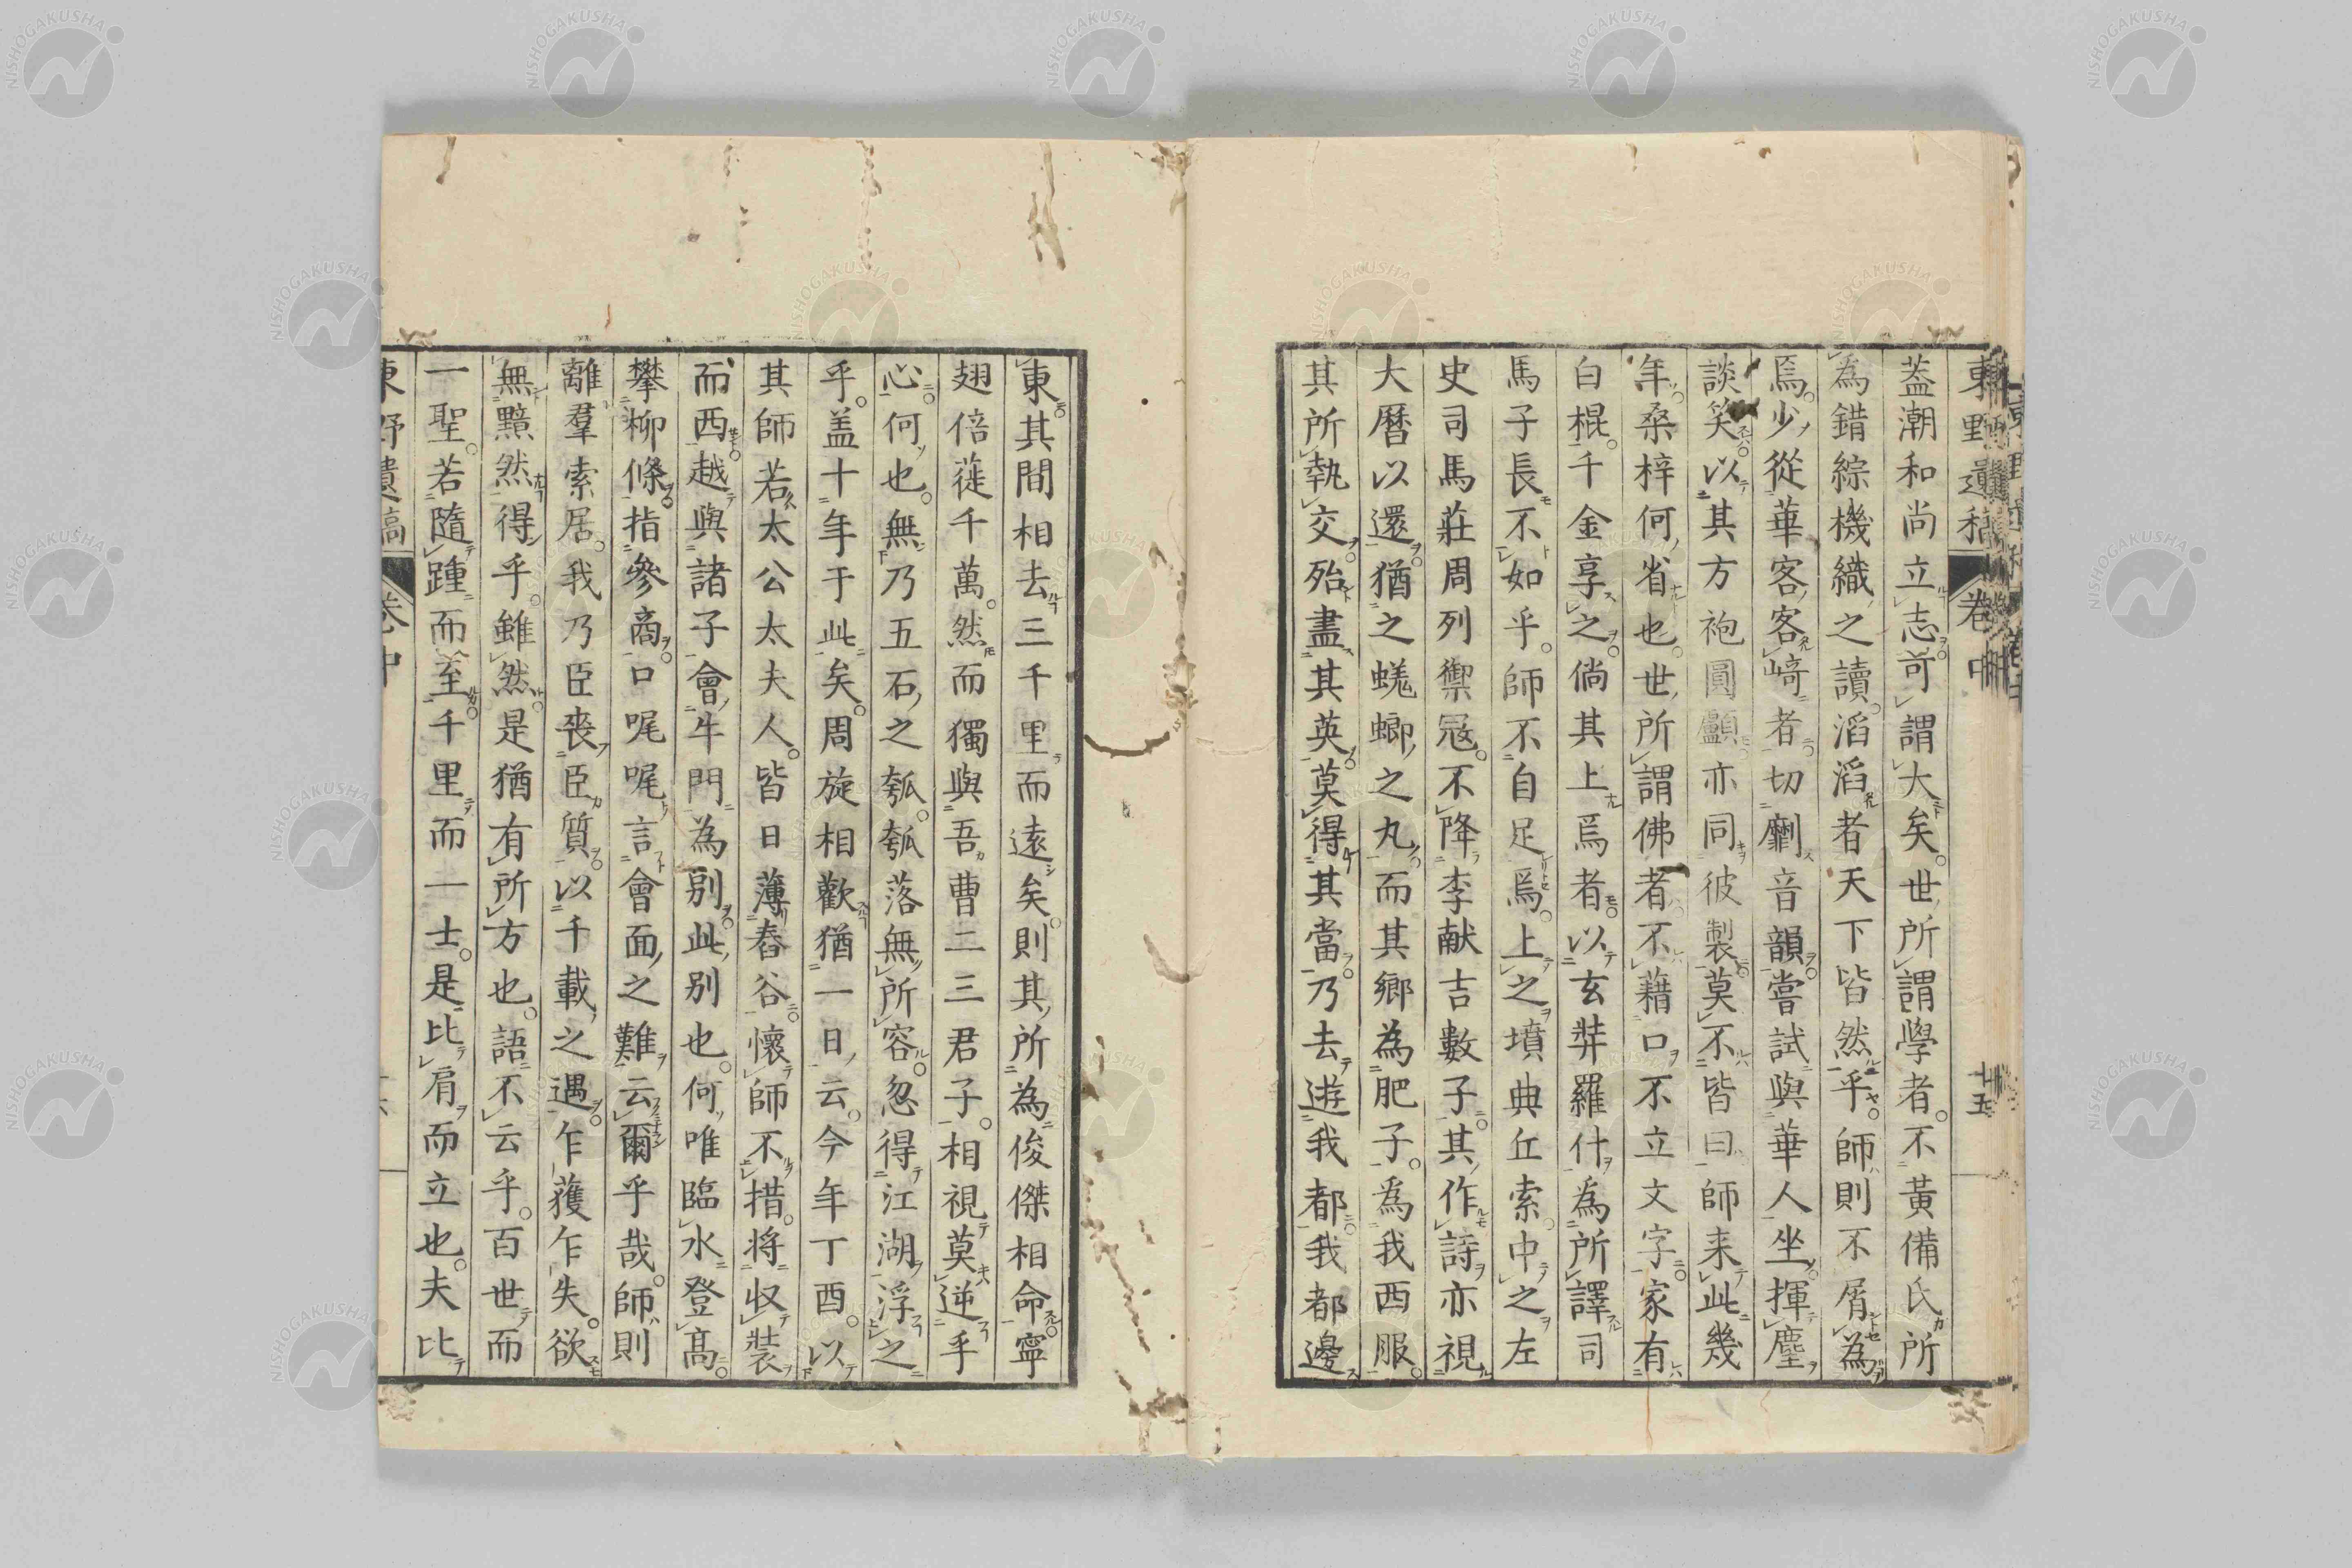 東野遺稿 卷中 十五
蓋潮和尚立志可謂大矣。世所謂學者。不黃備氏所
為錯綜機織之讀。滔滔者天下皆然乎。師則不屑為
焉。少從華客客﨑者切劘音韻。嘗試與華人坐揮麈
談笑。以其方袍圓顱亦同彼製。莫不皆曰師来此幾
年。桑梓何省也。世所謂佛者不藉口不立文字家有
白棍。千金享之。倘其上焉者。以玄弉羅什為所譯司
馬子長不如乎。師不自足焉。上之墳典丘索。中之左
史司馬莊周列禦冦。不降李献吉數子。其作詩亦視
大暦以還。猶之蜣螂之丸。而其鄉為肥子。為我西服。
其所執交。殆盡其英。莫得其當。乃去遊我都。我都邊
東。其間相去三千里而遠矣。則其所為俊傑相命寧
翅倍蓰千萬。然而獨與吾曹二三君子。相視莫逆乎
心。何也。無乃五石之瓠。瓠落無所容。忽得江湖浮之
乎。盖十年于此矣。周旋相歡猶一日云。今年丁酉。以
其師若太公太夫人。皆日薄舂谷。懷師不措。将収装
而西。越與諸子會牛門為別。此別也。何唯臨水登髙
攀柳條指參商。口呢呢言會面之難云爾乎哉。師則
離羣索居。我乃臣喪臣質。以千載之遇。乍獲乍失。欲
無黯然得乎。雖然。是猶有所方也。語不云乎。百世而
一聖。若隨踵而至。千里而一士。是比肩而立也。夫比
東野遺稿 卷中